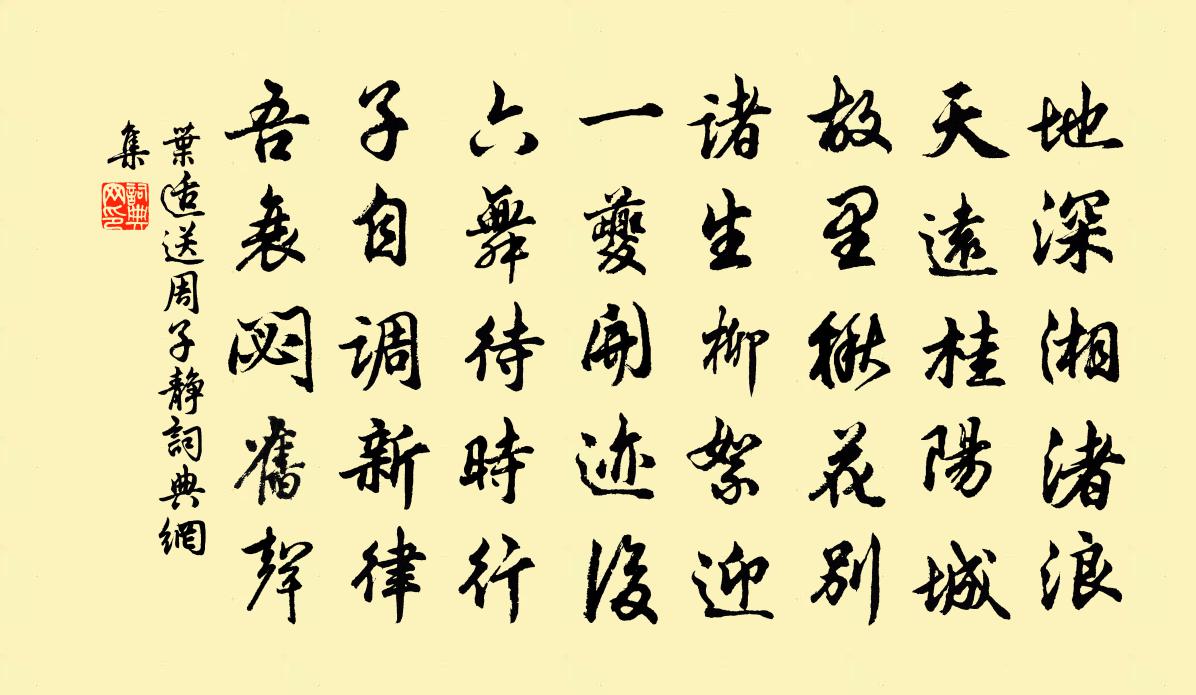 地深湘渚浪
天遠桂陽城
故里楸花別
諸生柳絮迎
一夔開迹後
六舞待時行
子自调新律
吾衰閟舊聲
葉适送周子靜詞典網
集
詞典
网印